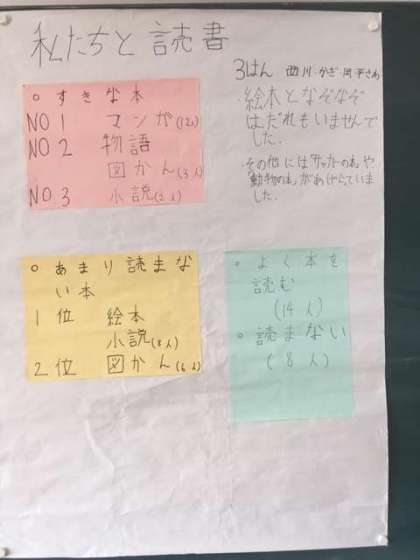 私たちと読書
3はん 西川
・絵本となぞなぞ
は、だれもいませんで
した。
・その他には「サッカーの本」や
「動物の本」があがっていま
した。
○ すきな本
NO 1 マンガ(12人)
NO 2 物語
図かん(3人)
NO 3 小説(2人)
○ あまり読まな
い本
1位 絵本
小説(8人)
2位 図かん(6人)
○ よく本を
読む
(14人)
○ 読まない
(8人)